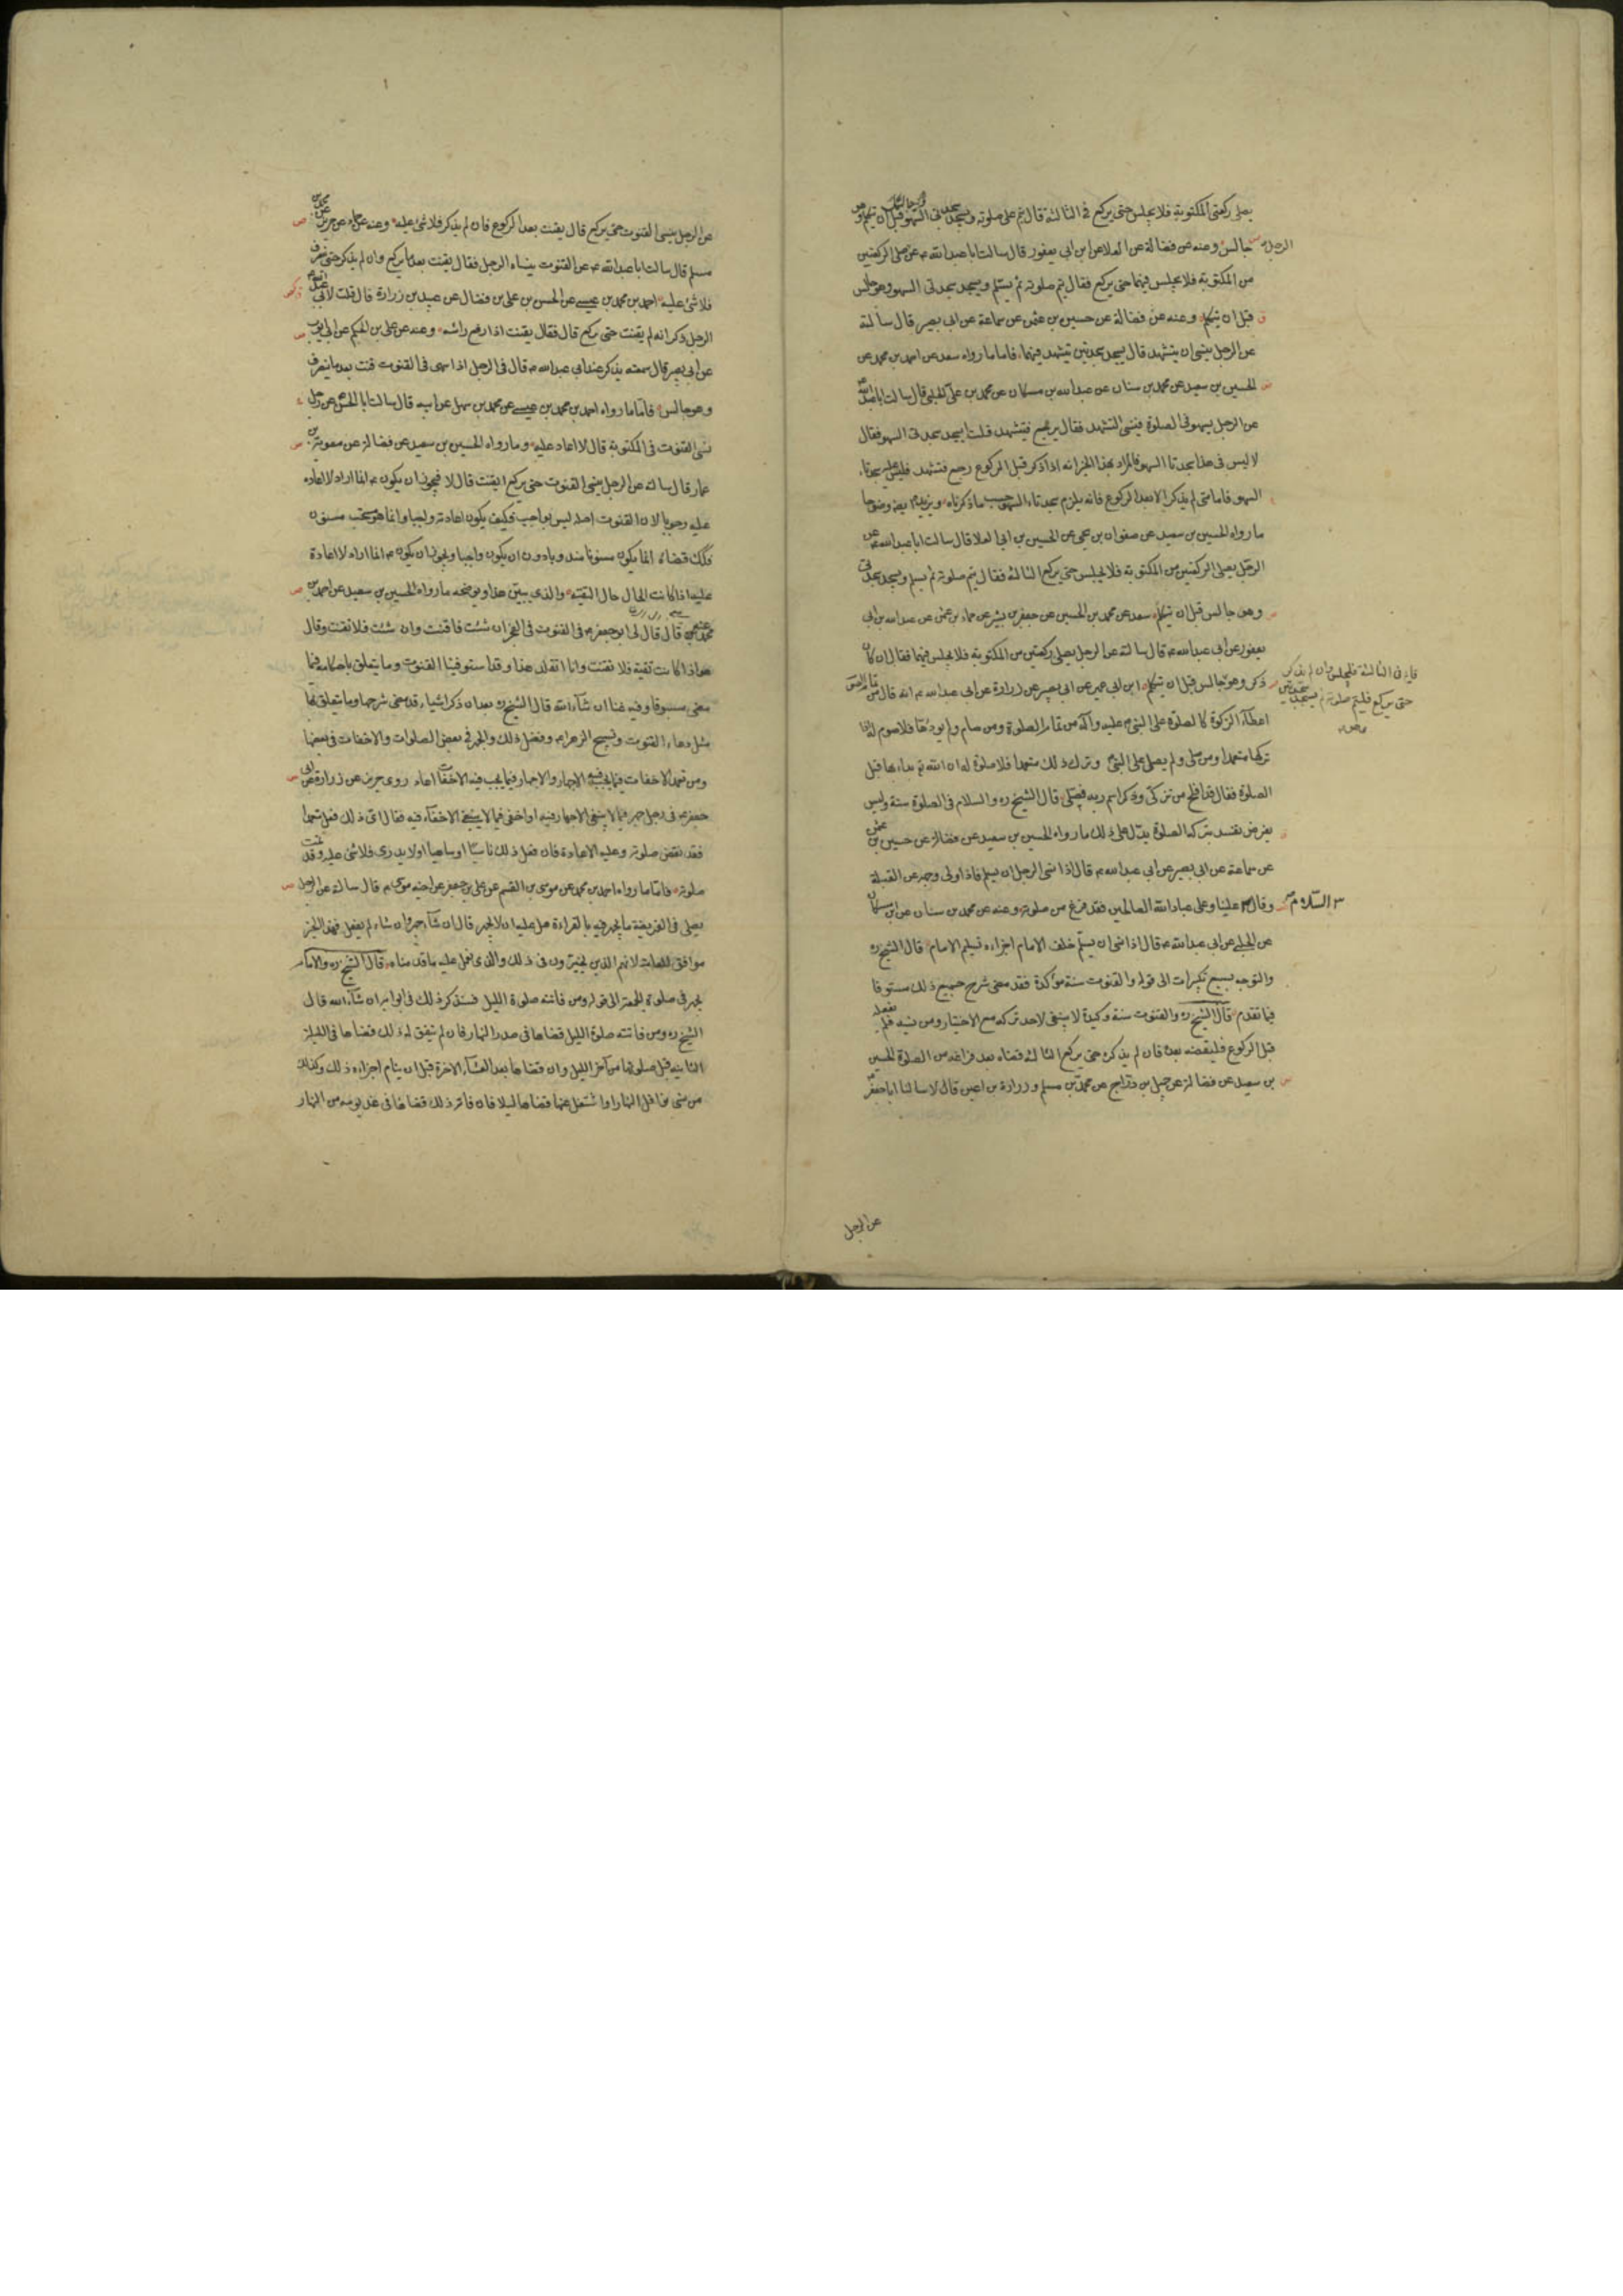 يصلى ركعتى المكتوبة فلا يجلس حتى يركع فى الثالثة قال يتم على صلوته ويسجد سجدتى السهو قبل ان يتكلم وهو
جالس وعنه عن فضالة عن العلا عن ابن ابى يعفور قال سالت ابا عبد الله ع عن الرجل يصلى الركعتين
من المكتوبة فلا يجلس فيهما حتى يركع فقال يتم صلوته ثم يسلم ويسجد سجدتى السهو وهو جالس
قبل ان يتكلم وعنه عن فضالة عن حسين بن عثمن عن سماعة عن ابى بصير قال سألته
عن الرجل ينسى ان يتشهد قال يسجد سجدتين يتشهد فيهما فاما ما رواه سعد عن احمد بن محمد عن
الحسين بن سعيد عن محمد بن سنان عن عبد الله بن مسكان عن محمد بن على الحلبى قال سالت ابا عبد الله ع
عن الرجل يسهو فى الصلوة فينسى التشهد فقال يرجع فيتشهد قلت ايسجد سجدتى السهو فقال
لا ليس فى هذا سجدتا السهو فالمراد بهذا الخبر انه اذا ذكر قبل الركوع رجع فتشهد فليس عليه سجدتا
السهو فاما متى لم يذكر الا بعد الركوع فانه يلزم سجدتاء السهو حسب ما ذكرناه ويزيده ايضا وضوحا
ما رواه الحسين بن سعيد عن صفوان بن يحيى عن الحسين بن ابى العلا قال سالت ابا عبد الله ع عن
الرجل يصلى الركعتين من المكتوبة فلا يجلس حتى يركع الثالثة فقال يتم صلوته ثم يسلم ويسجد سجدتى
وهو جالس قبل ان يتكلم سعد عن محمد بن الحسين عن جعفر بن بشير عن حماد بن عثمن عن عبد الله بن ابى
يعفور عن ابى عبد الله ع قال سالته عن الرجل يصلى ركعتين من المكتوبة فلا يجلس فيهما فقال ان كان
ذكر وهو قائم فى الثالثة فليجلس وان لم يذكر حتى يركع فليتم صلوته ثم يسجد سجدتين وهو جالس قبل ان يتكلم ابن ابى عمير عن ابى بصير عن زرارة عن ابى عبد الله ع انه قال من تمام الصوم
اعطاء الزكوة كالصلوة على النبى عليه وآله من تمام الصلوة ومن صام ولم يؤدها فلا صوم له اذا
تركها متعمدا ومن صلى ولم يصل على النبى وترك ذلك متعمدا فلا صلوة له ان الله تع بداء بها قبل
الصلوة فقال قد افلح من تزكى وذكر اسم ربه فصلى قال الشيخ ره والسلام فى الصلوة سنة وليس
بفرض تفسد بتركه الصلوة يدل على ذلك ما رواه الحسين بن سعيد عن فضالة عن حسين بن عثمن
عن سماعة عن ابى بصير عن ابى عبد الله ع قال اذا نسى الرجل ان يسلم فاذا ولى وجهه عن القبلة
وقال السلام علينا وعلى عباد الله الصالحين فقد فرغ من صلوته وعنه عن محمد بن سنان عن ابن مسكان
عن الحلبى عن ابى عبد الله ع قال اذا نسى ان يسلم خلف الامام اجزاءه تسليم الامام قال الشيخ ره
والتوجه بسبع تكبيرات الى قوله والقنوت سنة مؤكدة فقد مضى شرح جميع ذلك مستوفا
فيما تقدم قال الشيخ ره والقنوت سنة وكيدة لا ينبغى لاحد تركه مع الاختيار ومن نسيه فلم يفعله
قبل الركوع فليقضه بعده فان لم يذكره حتى يركع الثالثة قضاه بعد فراغه من الصلوة الحسين
بن سعيد عن فضالة عن جميل بن دراج عن محمد بن مسلم وزرارة بن اعين قالا سالنا ابا جعفر ع
عن الرجل
عن الرجل ينسى القنوت حتى يركع قال يقنت بعد الركوع فان لم يذكر فلا شئ عليه وعنه عن حماد عن حريز عن محمد بن
مسلم قال سالت ابا عبد الله ع عن القنوت ينساه الرجل فقال يقنت بعد ما يركع وان لم يذكر حتى ينصرف
فلا شئ عليه احمد بن محمد بن عيسى عن الحسن بن على بن فضال عن عبيد بن زرارة قال قلت لابى عبد الله ع
الرجل ذكر انه لم يقنت حتى يركع قال فقال يقنت اذا رفع راسه وعنه عن على بن الحكم عن ابى ايوب
عن ابى بصير قال سمعته يذكر عند ابى عبد الله ع قال فى الرجل اذا سهى فى القنوت قنت بعد ما ينصرف
وهو جالس فاما ما رواه احمد بن محمد بن عيسى عن محمد بن سهل عن ابيه قال سالت ابا الحسن ع عن رجل
نسى القنوت فى المكتوبة قال لا اعادة عليه وما رواه الحسين بن سعيد عن فضالة عن معوية بن
عمار قال سالته عن الرجل ينسى القنوت حتى يركع ايقنت قال لا فيجوز ان يكون ع انما اراد لا اعادة
عليه وجوبا لان القنوت اصله ليس بواجب فكيف يكون اعادته واجبا وانما هو مستحب مسنون
فكذلك قضاء انما يكون مسنونا مندوبا دون ان يكون واجبا ويجوز ان يكون ع انما اراد لا اعادة
عليه اذا كانت الحال حال التقية والذى يبين هذا ويوضحه ما رواه الحسين بن سعيد عن احمد بن
محمد عن قال قال لى ابو جعفر ع فى القنوت فى الفجر ان شئت فاقنت وان شئت فلا تقنت وقال
هو اذا كانت تقية فلا تقنت وانا اتقلد هذا وقد استوفينا القنوت وما يتعلق باحكامه فيما
مضى مستوفا وفيه غنا ان شآء الله قال الشيخ ره بعد ان ذكر اشياء قد مضى شرحها وما يتعلق بها
مثل دعاء القنوت وتسبيح الزهراء وفضل ذلك والجهر فى بعض الصلوات والاخفات فى بعضها
ومن تعمد الاخفات فيما يجب فيه الاجهار والاجهار فيما يجب فيه الاخفات اعاد روى حريز عن زرارة عن ابى
جعفر ع فى رجل جهر فيما لا ينبغى الاجهار فيه او اخفى فيما لا ينبغى الاخفاء فيه فقال اى ذلك فعل متعمدا
فقد نقض صلوته وعليه الاعادة فان فعل ذلك ناسيا او ساهيا او لا يدرى فلا شئ عليه وقد تمت
صلوته فاما ما رواه احمد بن محمد عن موسى بن القسم عن على بن جعفر عن اخيه موسى ع قال سالته عن الرجل
يصلى فى الفريضة ما يجهر فيه بالقراءة هل عليه ان لا يجهر قال ان شآء جهر وان شاء لم يفعل فهذا الخبر
موافق للعامة لانهم الذين يخيرون فى ذلك والذى نعمل عليه ما قدمناه قال الشيخ ره والامام
يجهر فى صلوة الجمعة الى قوله ومن فاتته صلوة الليل فسنذكر ذلك فى ابوابه ان شآء الله قال
الشيخ ره ومن فاتته صلوة الليل قضاها فى صدر النهار فان لم يتفق له ذلك قضاها فى الليلة
الثانية قبل صلوتها من آخر الليل وان قضاها بعد العشآء الاخرة قبل ان ينام اجزاءه ذلك وكذلك
من نسى نوافل النهار او اشتغل عنها قضاها ليلا فان فاته ذلك قضاها فى غد يومه من النهار